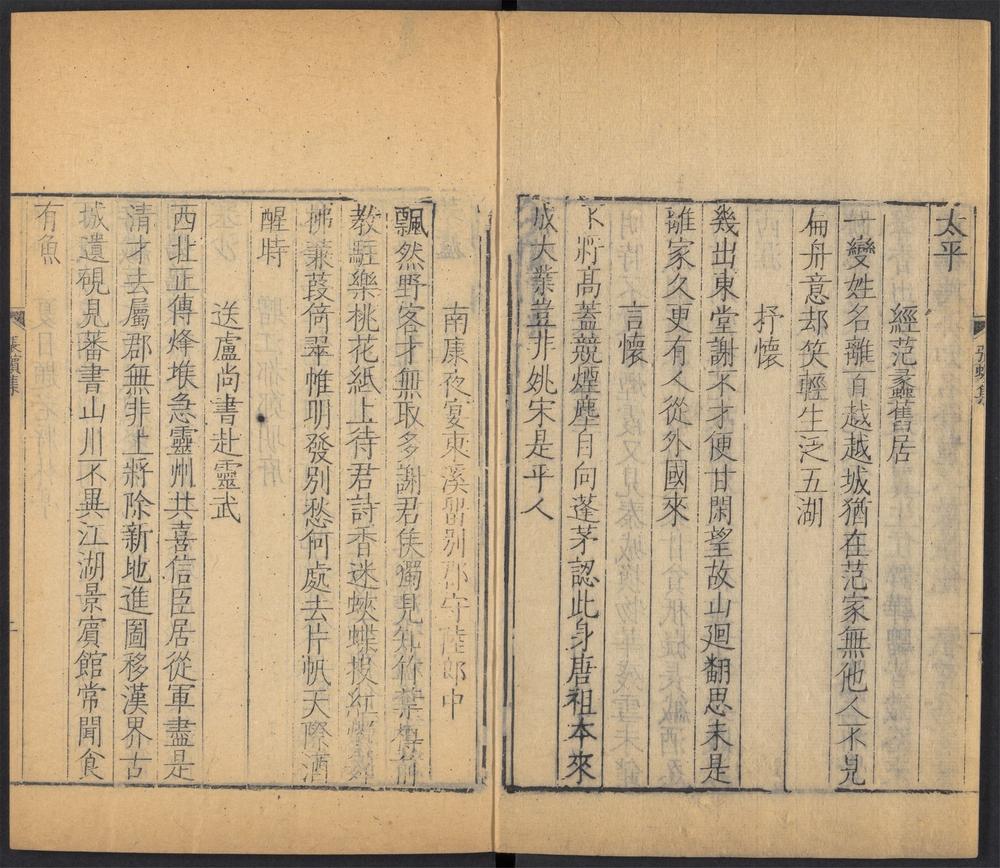 太平
經范蠡舊居
一變姓名離百越越城猶在范家無他人不見
扁舟意却笑輕生泛五湖
抒懷
幾出東堂謝不才便甘閑望故山廻翻思未是
離家久更有人從外國來
言懷
不將高蓋競煙塵自向蓬茅認此身唐祖本來
成大業豈非姚宋是平人
張蠙集
南康夜宴東溪留別郡守陸郎中
飄然野客才無取多謝君侯獨見知竹葉樽前
教駐樂桃花紙上待君詩香迷蛺蝶投紅燭
拂蒹葭倚翠帷明發別愁何處去片帆天際酒
醒時
送盧尚書赴靈武
西北正傳烽堠急靈州共喜信臣居從軍盡是
清才去屬郡無非上將除新地進圖移漢界古
城遺硯見蕃書山川不異江湖景賓館常聞食
有魚
張蠙集